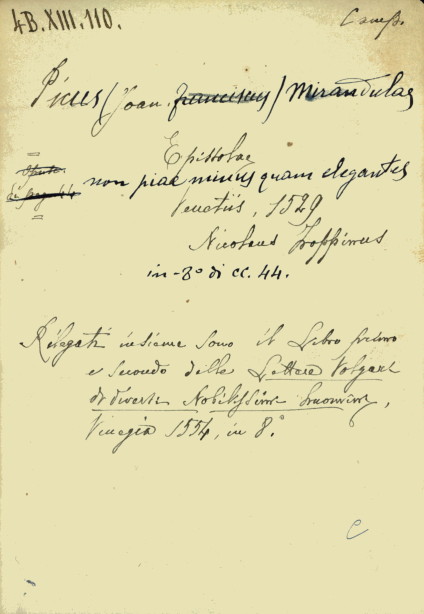 4B.XIII.110.
Camp.
Picus (Joan. Franciscus) Mirandulae
Epistolae
non piae minus quam elegantes
Venetiis, 1529
Nicolaus Zoppinus
in-8° di cc. 44.
Rilegati insieme sono il Libro primo
e secondo delle Lettere Volgari
di diversi Nobilissimi huomini,
Vinegia 1554, in 8.°
C